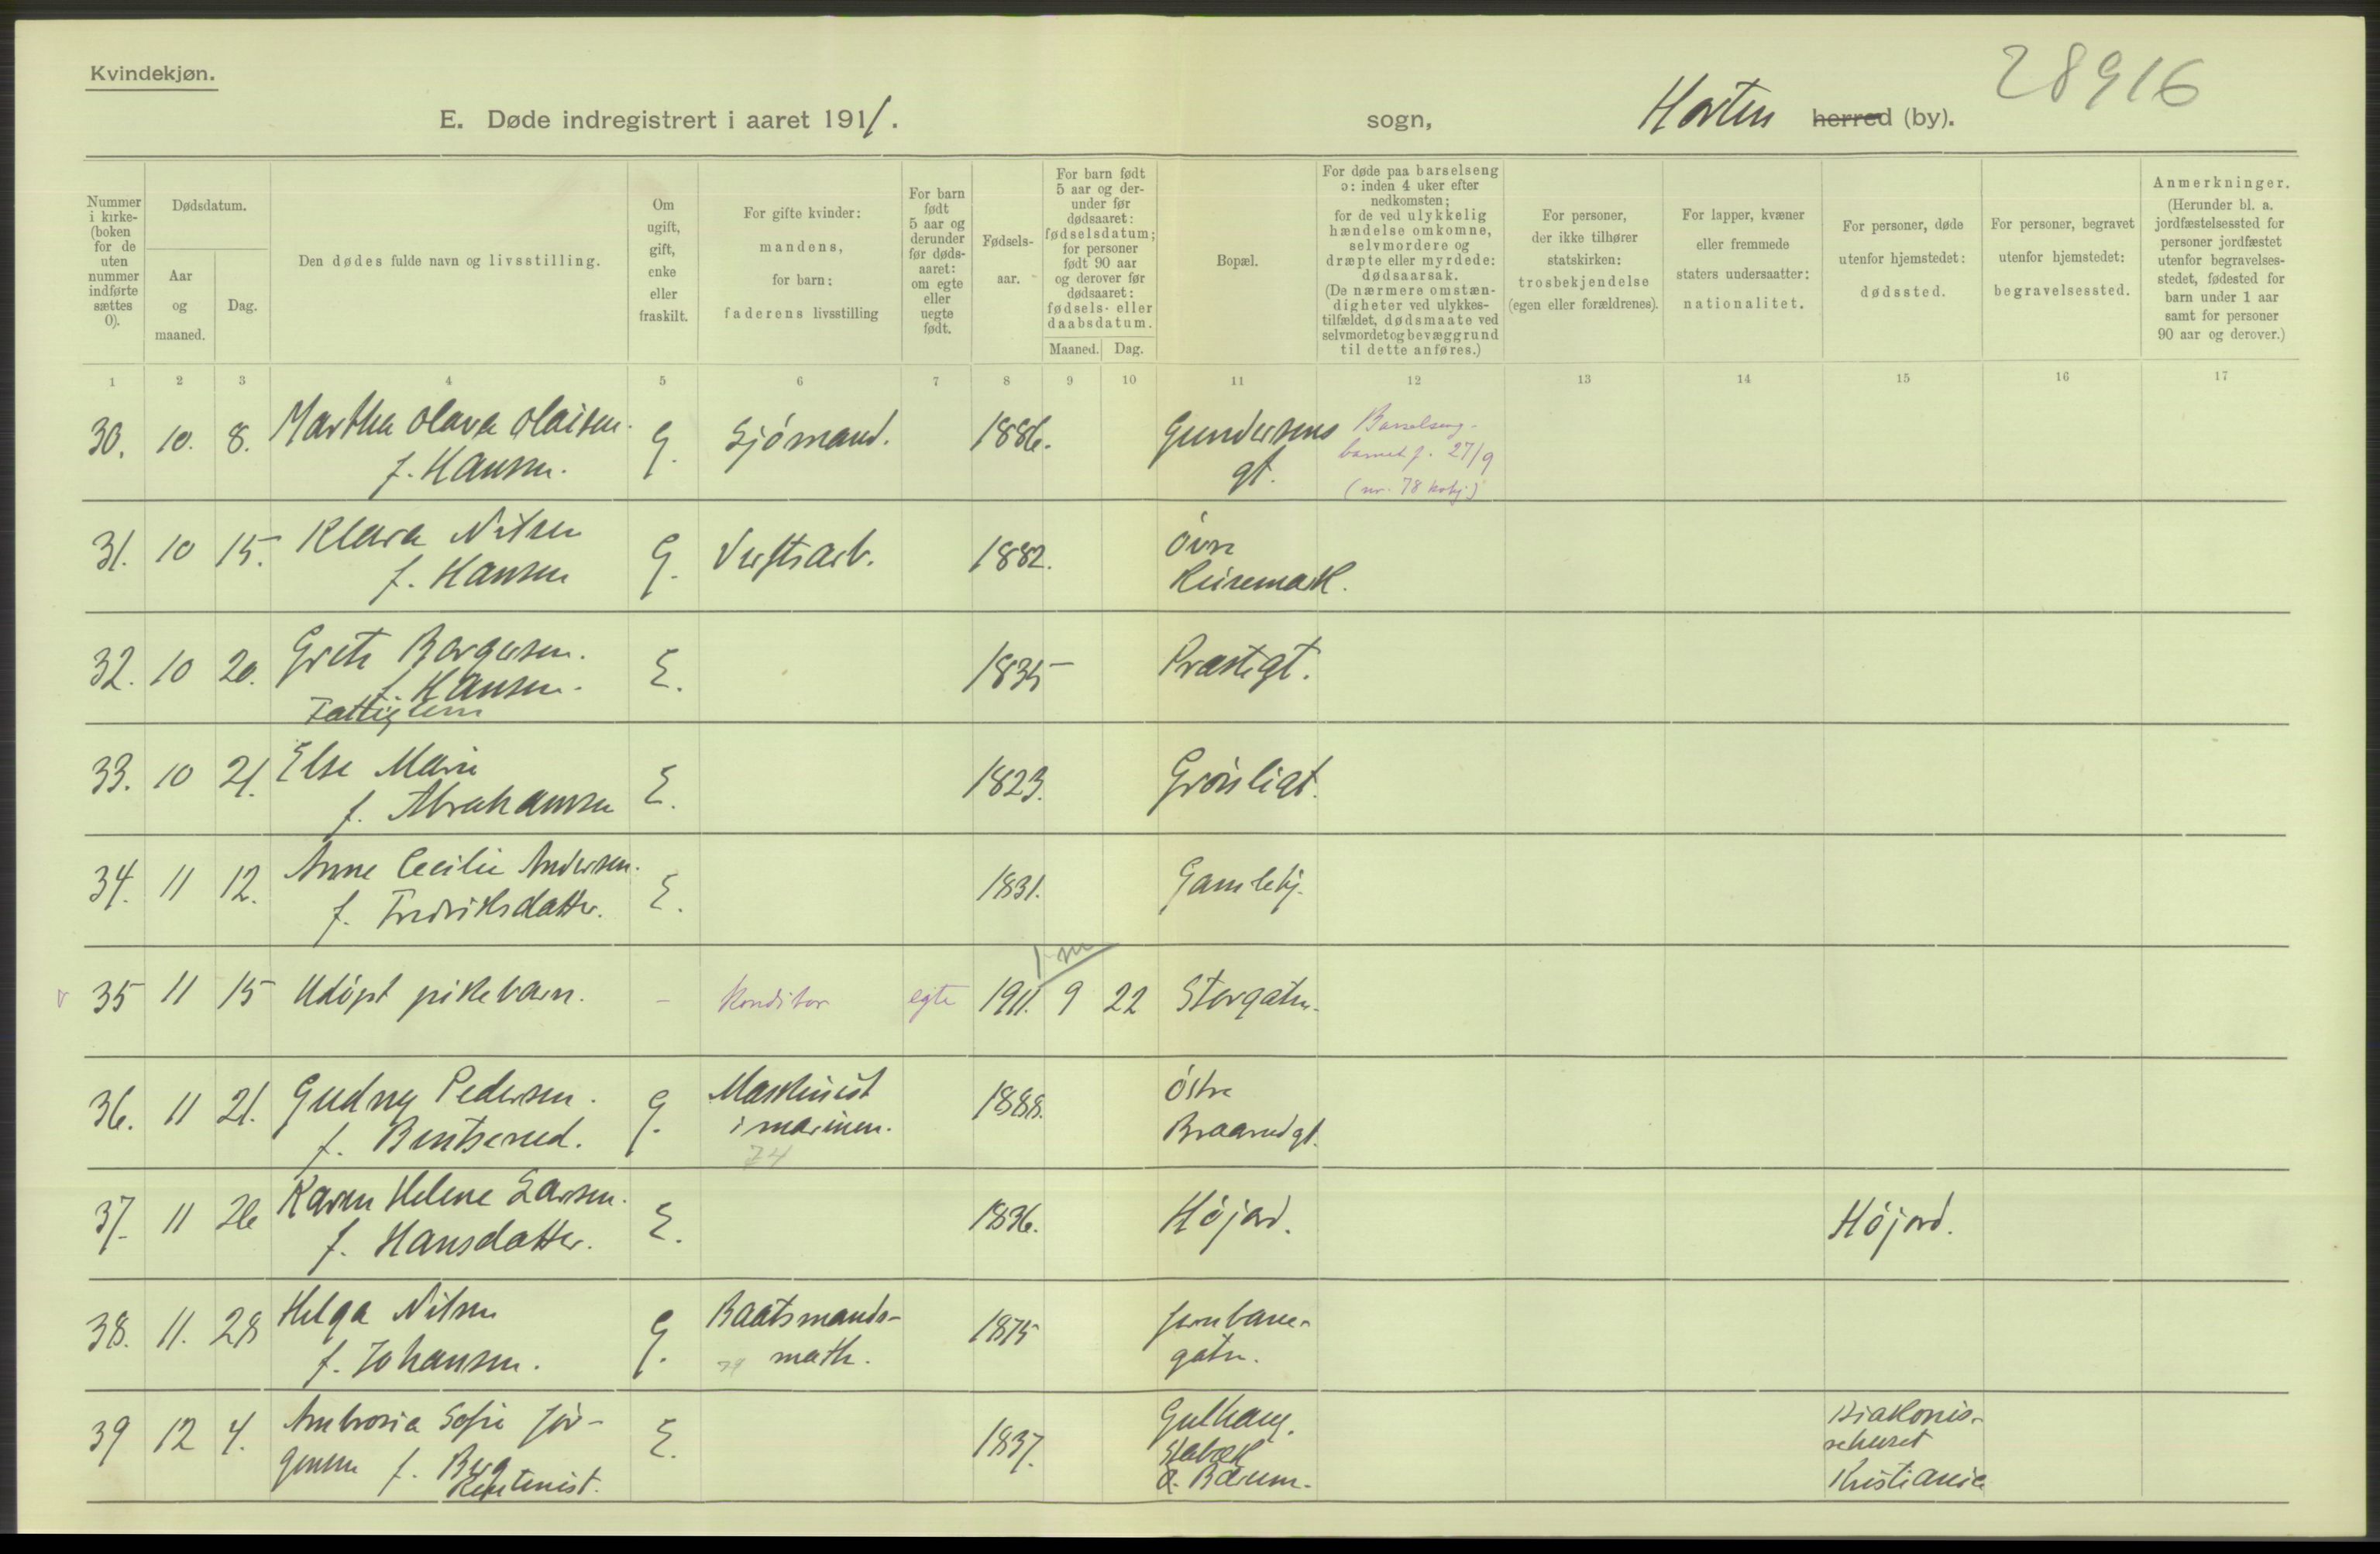 Kvindekjøn.
28916
E. Døde indregistrert i aaret 1911.
sogn, Horten herred (by).
Nummer i kirke- (boken for de uten nummer indførte sættes 0).
Dødsdatum.
Aar og maaned.
Dag.
Den dødes fulde navn og livsstilling.
Om ugift, gift, enke eller fraskilt.
For gifte kvinder: mandens, for barn: faderens livsstilling
For barn født 5 aar og derunder før døds- aaret: om egte eller uegte født.
Fødsels- aar.
For barn født 5 aar og der- under før dødsaaret: fødselsdatum; for personer født 90 aar og derover før dødsaaret: fødsels- eller daabsdatum.
Maaned. Dag.
Bopæl.
For døde paa barselseng ɔ: inden 4 uker efter nedkomsten; for de ved ulykkelig hændelse omkomne, selvmordere og dræpte eller myrdede: dødsaarsak. (De nærmere omstæn- digheter ved ulykkes- tilfældet, dødsmaate ved selvmordet og bevæggrund til dette anføres.)
For personer, der ikke tilhører statskirken: trosbekjendelse (egen eller forældrenes).
For lapper, kvæner eller fremmede staters undersaatter: nationalitet.
For personer, døde utenfor hjemstedet: dødssted.
For personer, begravet utenfor hjemstedet: begravelsessted.
Anmerkninger. (Herunder bl. a. jordfæstelsessted for personer jordfæstet utenfor begravelses- stedet, fødested for barn under 1 aar samt for personer 90 aar og derover.)
1 2 3 4 5 6 7 8 9 10 11 12 13 14 15 16 17
30. 10. 8. Martha Olava Olaisen. G. Sjömand. 1886. Gundersens Barselseng-
f. Hansen. gt. barnet f. 27/9
(nr. 78 )
31. 10 15. Klara Nilsen G. Verftsarb. 1882. Övre
f. Hansen Keisemark.
32. 10 20. Grete Borgersen. E. 1835 Præstegt.
f. Hansen.
Fattiglem
33. 10 21. Else Marie E. 1823. Grönligt.
f. Abrahamsen
34. 11 12. Anne Cecilie Andersen. E. 1831. Gamlehj.
f. Fredriksdatter.
1 m
v 35 11 15 Udöpt pikebarn. - Konditor egte 1911. 9 22 Storgaten.
36. 11 21. Gudny Pedersen. G. Maskinist 1888. Östre
f. Bentserud. i marinen. Braarudgt.
74
37. 11 26 Karen Helene Larsen. E. 1836. Höjord. Höjord.
f. Hansdatter.
38. 11. 28 Helga Nilsen G. Baatsmands- 1875 Jernbane-
f. Johansen. math. gaten.
39 12 4. Ambrosia Sofie Jör- E. 1837. Gulhaug. Diakonis-
gensen f. Berg Stabæk sehuset
Rentenist. V. Bærum. Kristiania